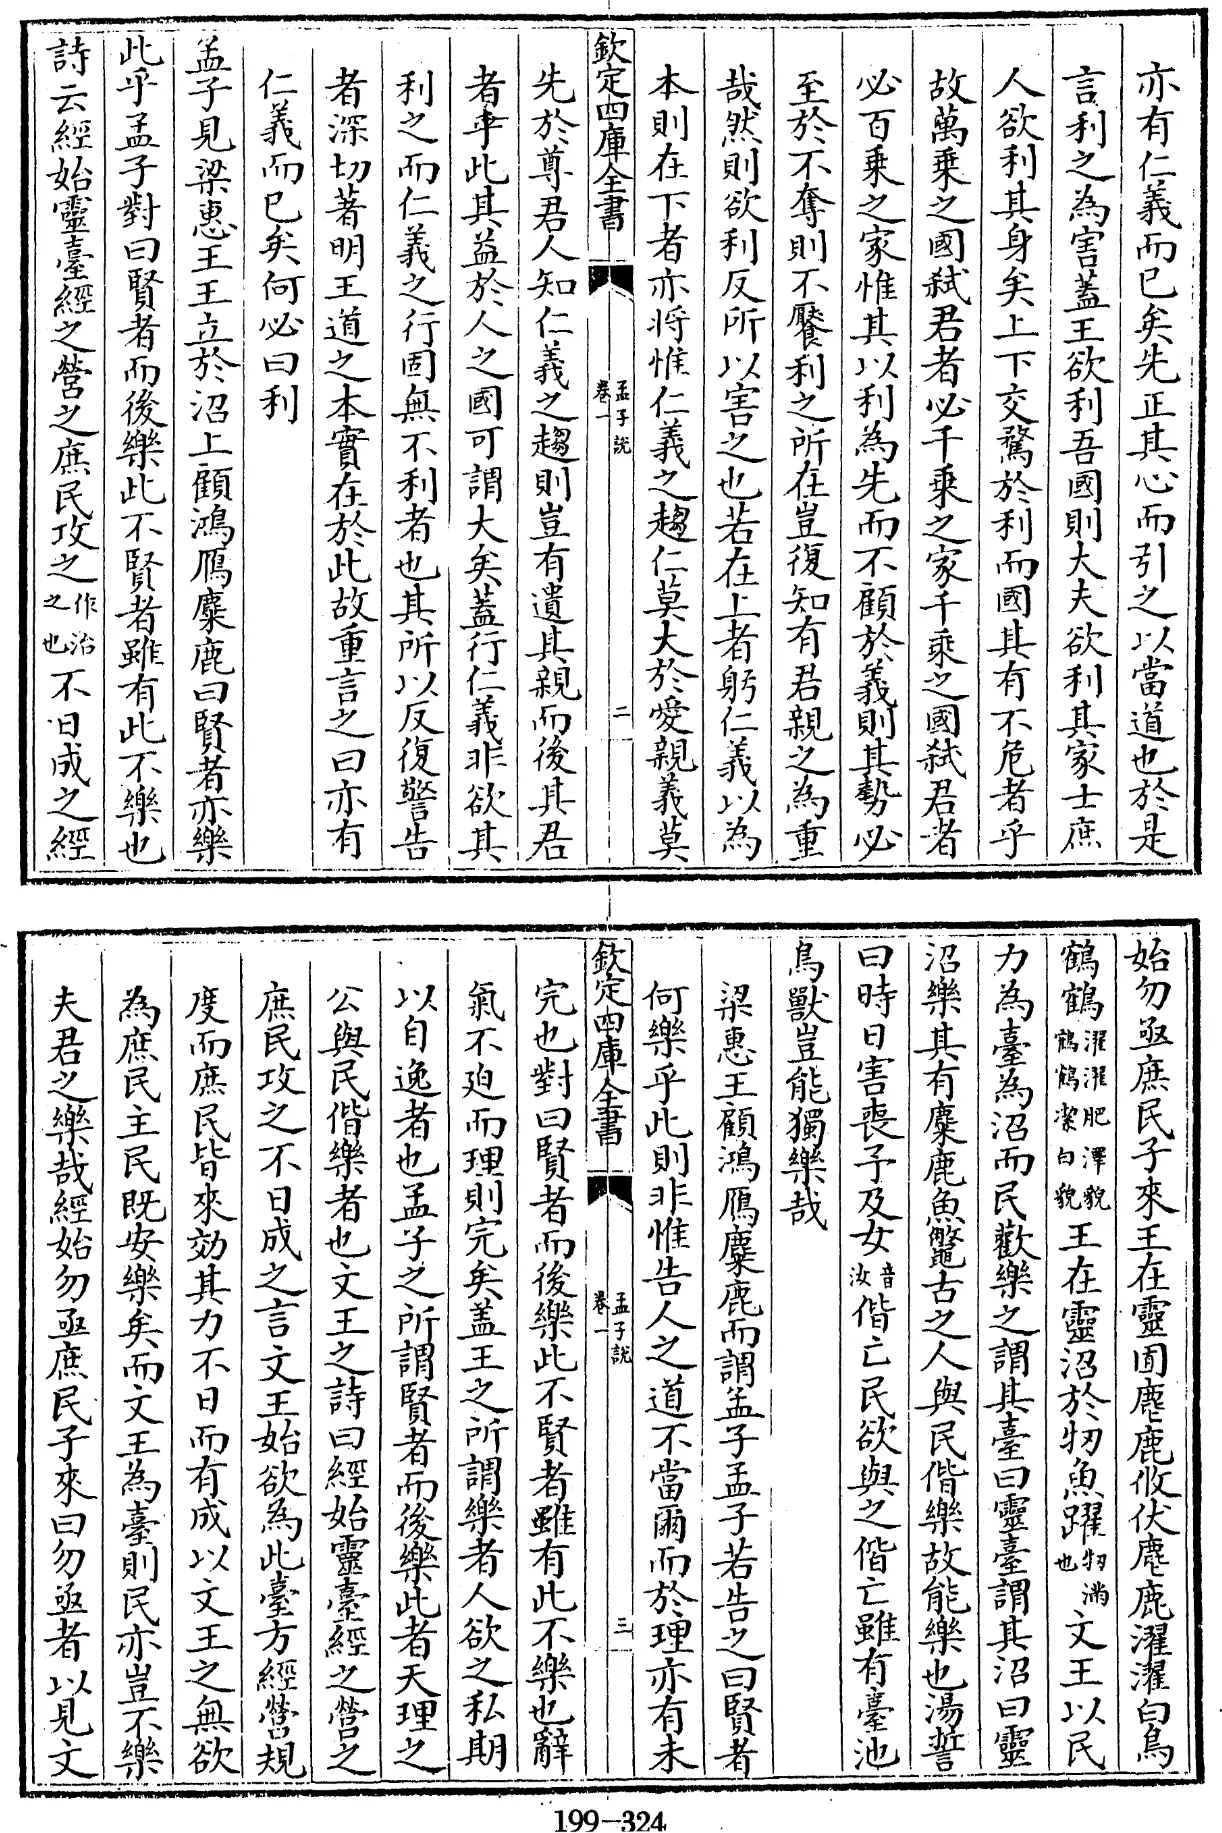 亦有仁義而已矣先正其心而引之以當道也於是
言利之為害蓋王欲利吾國則大夫欲利其家士庶
人欲利其身矣上下交騖於利而國其有不危者乎
故萬乗之國弑君者必千乗之家千乘之國弑君者
必百乗之家惟其以利為先而不顧於義則其勢必
至於不奪則不饜利之所在豈復知有君親之為重
哉然則欲利反所以害之也若在上者躬仁義以為
本則在下者亦將惟仁義之趨仁莫大於愛親義莫
欽定四庫全書
孟子說
卷一
二
先於尊君人知仁義之趨則豈有遺其親而後其君
者乎此其益於人之國可謂大矣蓋行仁義非欲其
利之而仁義之行固無不利者也其所以反復警告
者深切著明王道之本實在於此故重言之曰亦有
仁義而已矣何必曰利
孟子見梁惠王王立於沼上顧鴻鴈麋鹿曰賢者亦樂
此乎孟子對曰賢者而後樂此不賢者雖有此不樂也
詩云經始靈臺經之營之庶民攻之作治之也不日成之經
始勿亟庶民子來王在靈囿麀鹿攸伏麀鹿濯濯白鳥
鶴鶴濯濯肥澤貌鶴鶴潔白貌王在靈沼於牣魚躍牣滿也文王以民
力為臺為沼而民歡樂之謂其臺曰靈臺謂其沼曰靈
沼樂其有麋鹿魚鼈古之人與民偕樂故能樂也湯誓
曰時日害喪予及女音汝偕亡民欲與之偕亡雖有臺池
鳥獸豈能獨樂哉
梁惠王顧鴻鴈麋鹿而謂孟子孟子若告之曰賢者
何樂乎此則非惟告人之道不當爾而於理亦有未
欽定四庫全書
孟子說
卷一
三
完也對曰賢者而後樂此不賢者雖有此不樂也辭
氣不迫而理則完矣蓋王之所謂樂者人欲之私期
以自逸者也孟子之所謂賢者而後樂此者天理之
公與民偕樂者也文王之詩曰經始靈臺經之營之
庶民攻之不日成之言文王始欲為此臺方經營規
度而庶民皆來効其力不日而有成以文王之無欲
為庶民主民既安樂矣而文王為臺則民亦豈不樂
夫君之樂哉經始勿亟庶民子來曰勿亟者以見文
199-324